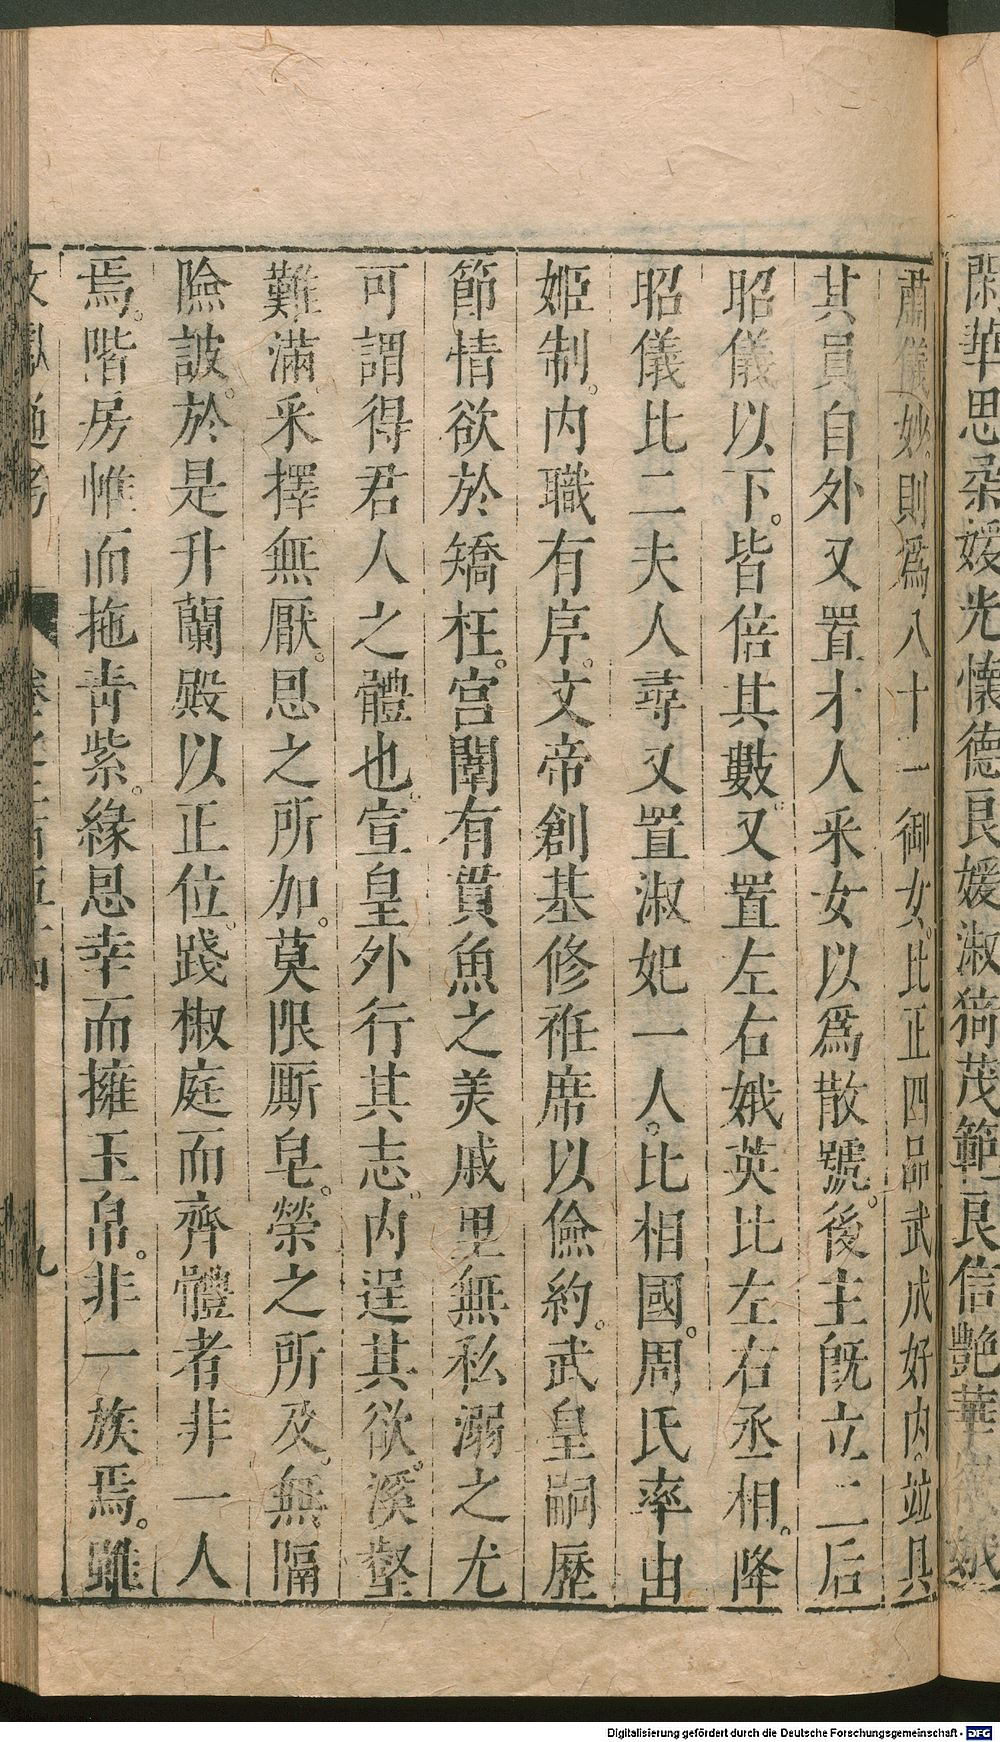 閑華思
媛光懷德良媛淑猗茂範良信艶華
肅儀妙則爲八十一御女比正四品武成好内並具
其員自外又置才人采女以爲散號後主旣立二后
昭儀以下皆倍其數又置左右娥英比左右丞相降
昭儀比二夫人尋又置淑妃一人比相國周氏率由
姬制内職有序文帝創基修衽席以儉約武皇嗣歷
節情欲於矯枉宮闈有貫魚之美戚里無私溺之尤
可謂得君人之體也宣皇外行其志内逞其欲溪壑
難滿采擇無厭恩之所加莫限厮皂榮之所及無隔
險詖於是升蘭殿以正位踐椒庭而齊體者非一人
焉階房帷而拖靑紫緣恩幸而擁玉帛非一族焉雖
九
Digitalisierung gefördert durch die Deutsche Forschungsgemeinschaft - DFG